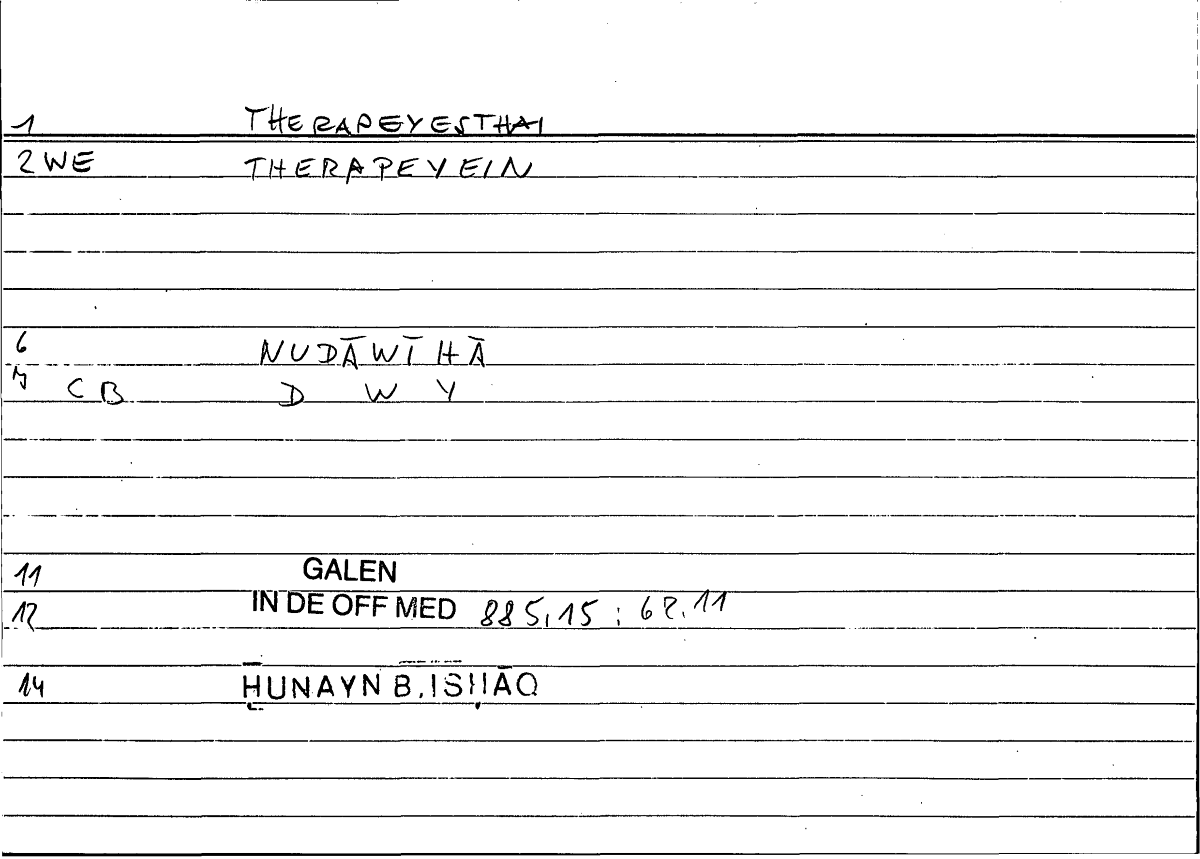 1 THERAPEYESTHAI
2 WE THERAPEYEIN
6 NUDĀWĪHĀ
7 CB D W Y
11 GALEN
12 IN DE OFF MED 885,15 : 62,11
14 ḤUNAYN B. ISḤĀQ